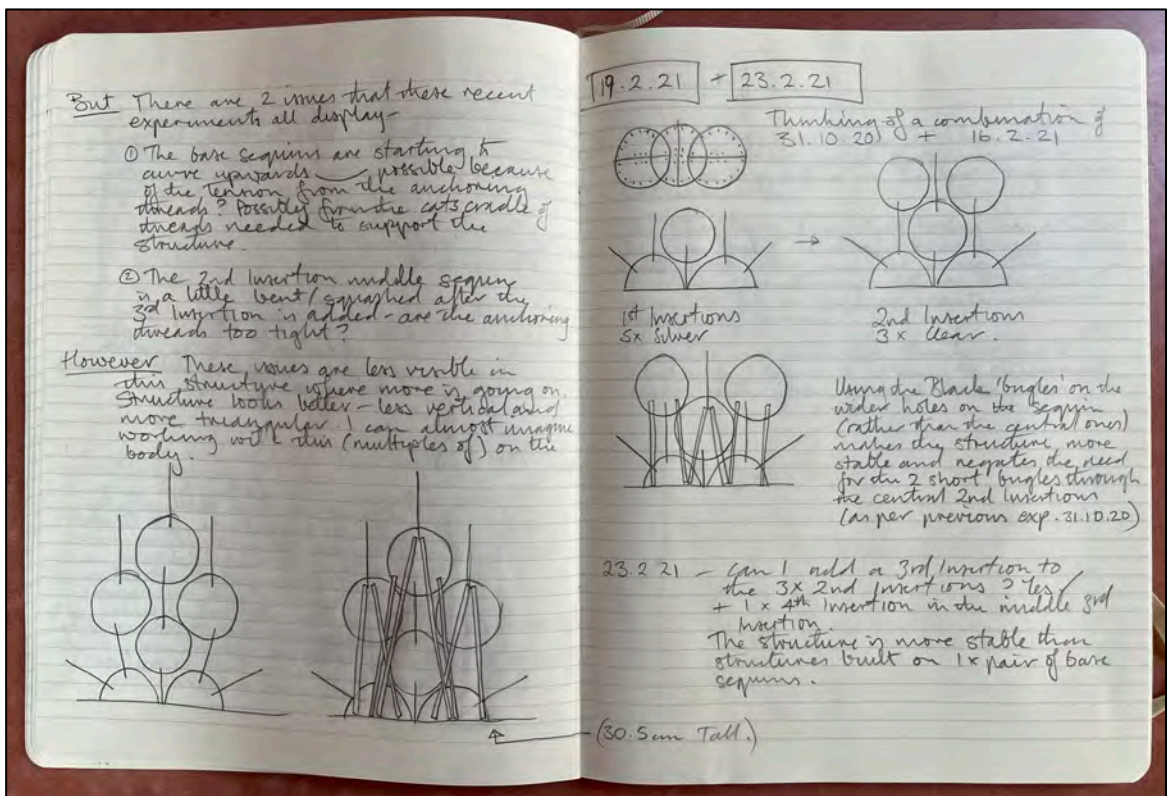 But There are 2 issues that these recent
experiments all display-
① The base sequins are starting to
curve upwards possible because
of the tension from the anchoring
threads? Possibly from the cats cradle of
threads needed to support the
structure.
② The 2nd Insertion middle sequin
is a little bent/squashed after the
3rd Insertion is added - are the anchoring
threads too tight?
However These issues are less visible in
this structure where more is going on.
Structure looks better - less vertical and
more triangular. I can almost imagine
working with this (multiples of) on the
body.
19.2.21 + 23.2.21
Thinking of a combination of
31.10.20 + 16.2.21
1st Insertions
5x Silver
2nd Insertions
3x Clear.
Using the Black 'bugles' on the
wider holes on the sequin
(rather than the central ones)
makes the structure more
stable and negates the need
for the 2 short bugles through
the central 2nd Insertions
(as per previous exp. 31.10.20)
23.2.21 - Can I add a 3rd Insertion to
the 3x 2nd Insertions? Yes
+ 1 x 4th Insertion in the middle 3rd
Insertion.
The structure is more stable than
structures built on 1x pair of base
sequins.
(30.5cm Tall.)